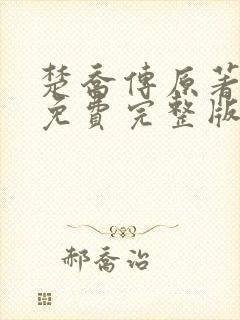 楚喬傳原著
免費完整版
郝喬治